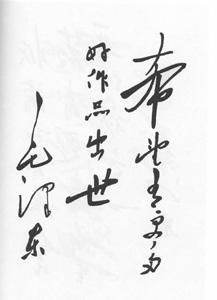 希望有更多
好作品出世
毛泽东